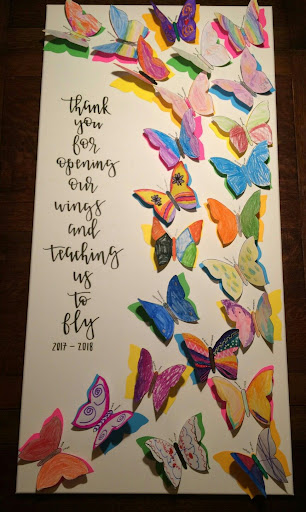 thank
you
for
opening
our
wings
and
teaching
us
to
fly
2017 - 2018